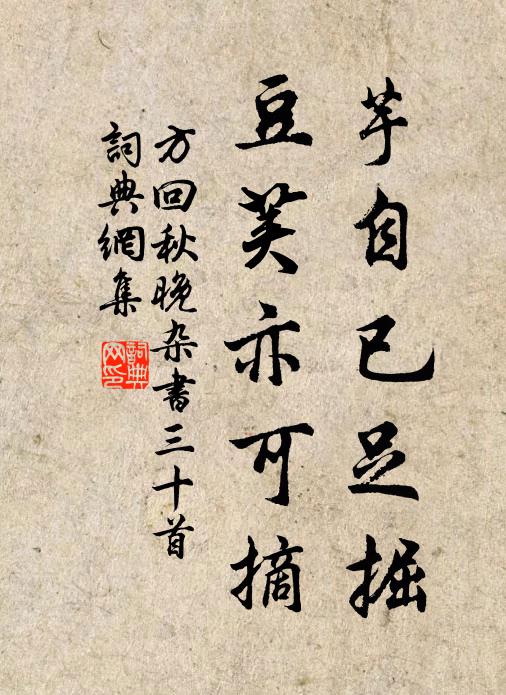 芋自已足掘
豆荚亦可摘
方回秋晚杂書三十首
詞典網集
詞典
网印